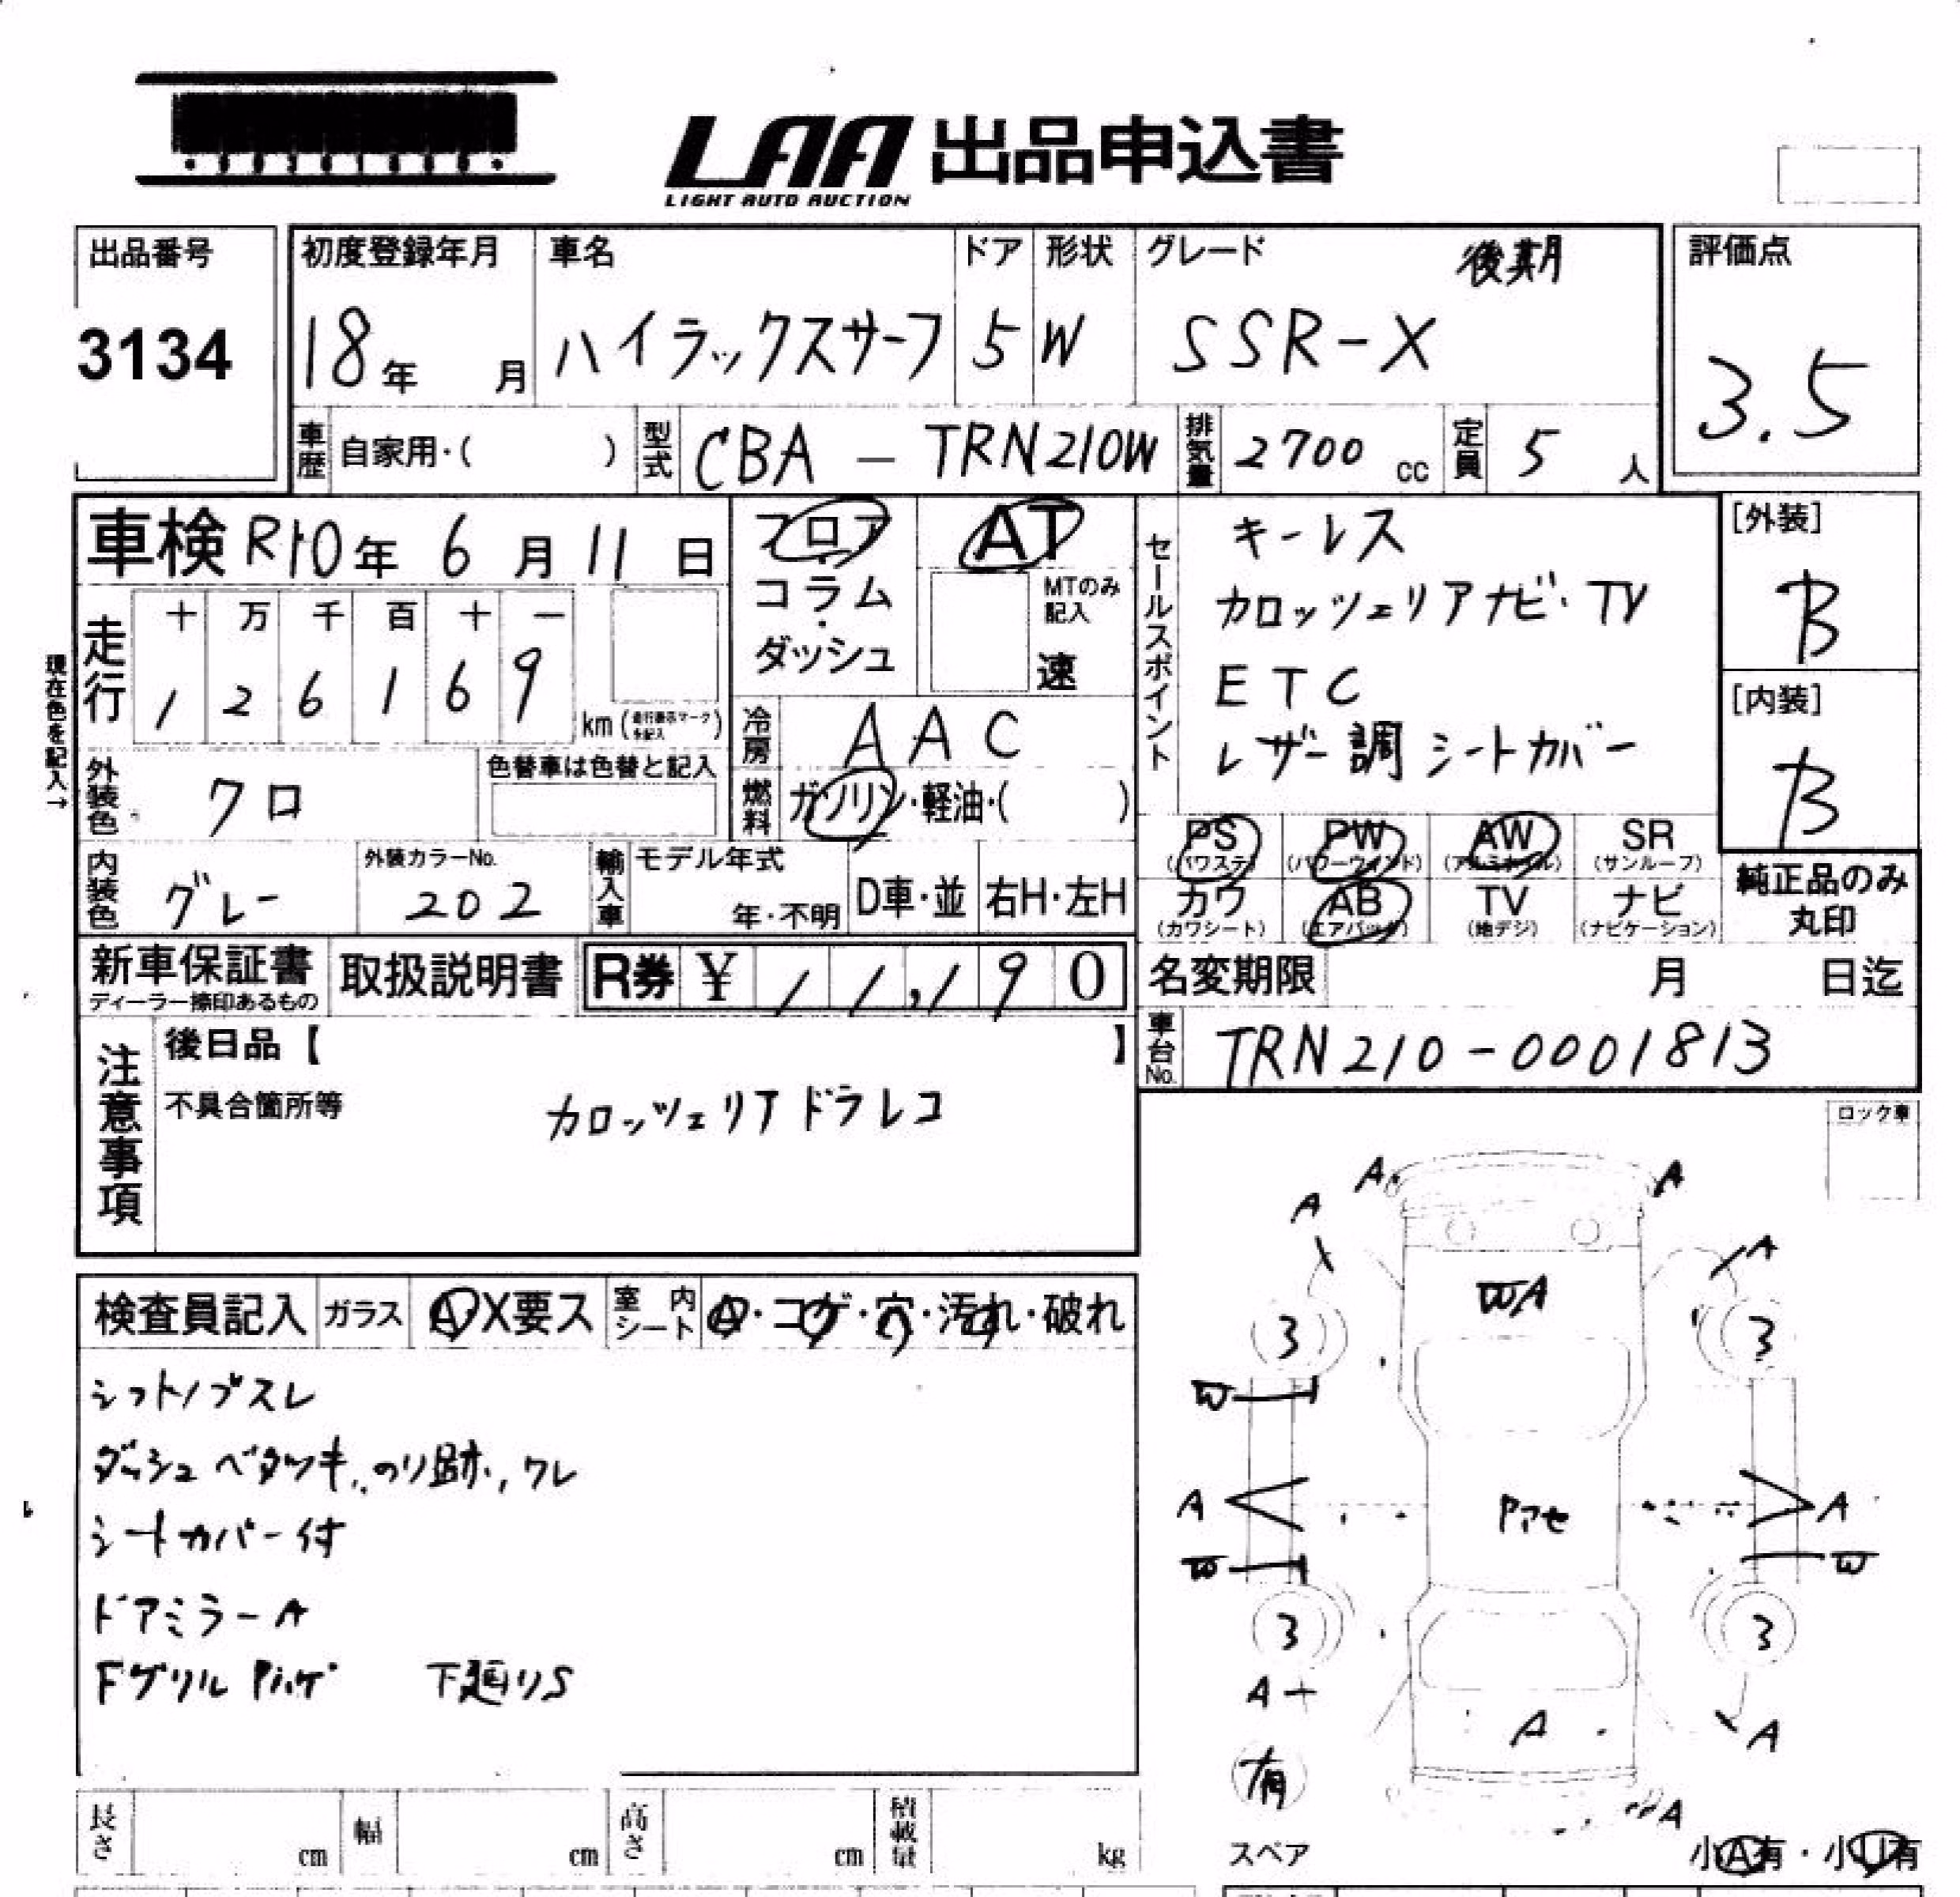 LAA 出品申込書
LIGHT AUTO AUCTION
出品番号
3134
初度登録年月
18年 月
車名
ハイラックスサーフ
ドア
5
形状
W
グレード 後期
SSR-X
評価点
3.5
車歴 自家用・( )
型式 CBA - TRN210W
排気量 2700 cc
定員 5 人
車検 R10年 6月 11日
フロア
コラム
ダッシュ
AT
MTのみ
記入
速
セールスポイント
キーレス
カロッツェリアナビ・TV
ETC
レザー調シートカバー
[外装]
B
[内装]
B
現在色を記入→
走行
十 万 千 百 十 一
1 2 6 1 6 9
km
冷房 AAC
燃料 ガソリン・軽油・( )
外装色 クロ
色替車は色替と記入
内装色 グレー
外装カラーNo.
202
輸入車
モデル年式
年・不明
D車・並 右H・左H
PS
(パワステ)
PW
(パワーウィンド)
AW
(アルミホイル)
SR
(サンルーフ)
カワ
(カワシート)
AB
(エアバッグ)
TV
(地デジ)
ナビ
(ナビゲーション)
純正品のみ
丸印
新車保証書
ディーラー捺印あるもの
取扱説明書
R券 ¥ 11,190
名変期限 月 日迄
車台No. TRN210-0001813
注意事項
後日品【 】
不具合箇所等
カロッツェリアドラレコ
ロック車
検査員記入 ガラス A・X要ス
室内シート A・コゲ・穴・汚れ・破れ
シフトノブスレ
ダッシュベタツキ、のり跡、ワレ
シートカバー付
ドアミラーA
Fグリル Pハゲ 下廻りS
A A
A A
WA
3 3
W
A Pアセ A
W W
3 3
A
A A
有
A
スペア
小A有・小U有
長さ cm
幅 cm
高さ cm
積載量 kg